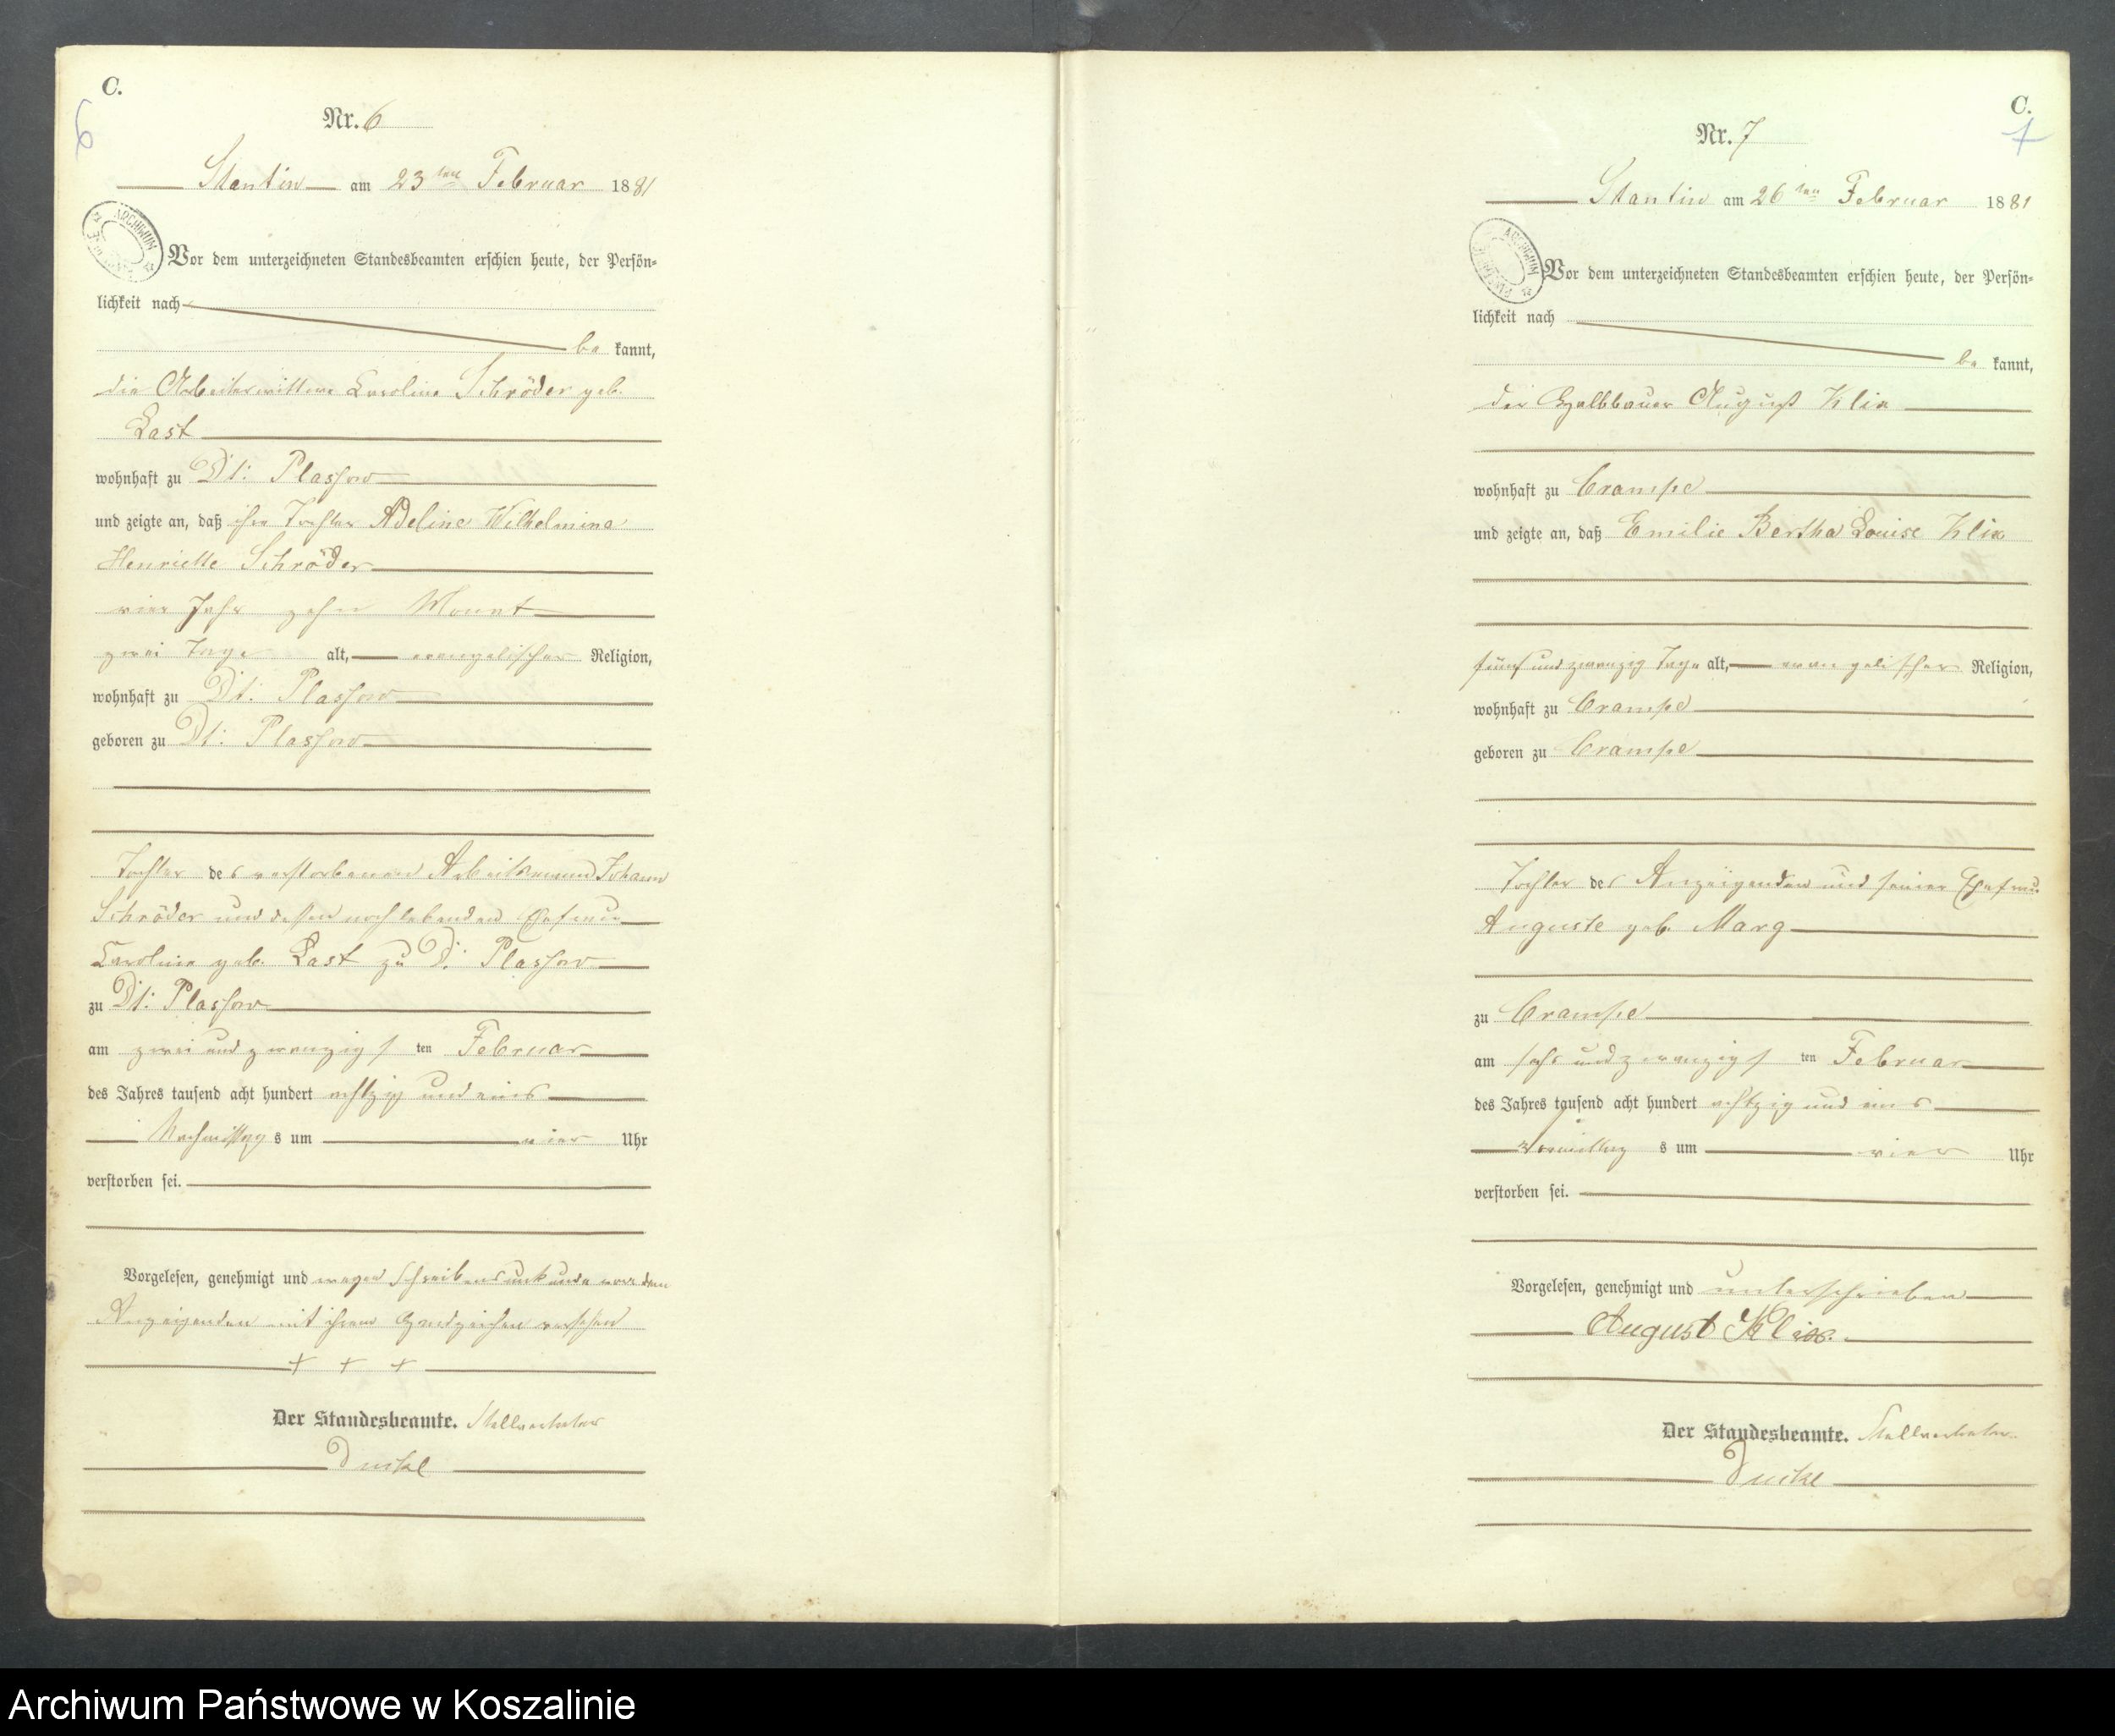 C.
6
Nr. 6
Stantin am 23ten Februar 1881
ARCHIWUM
Vor dem unterzeichneten Standesbeamten erschien heute, der Persön-
lichkeit nach
be kannt,
die Arbeiterwittwe Caroline Schröder geb.
Last
wohnhaft zu Dt: Plassow
und zeigte an, daß ihre Tochter Adeline Wilhelmine
Henriette Schröder
vier Jahr zehn Monat
zwei Tage alt, evangelischer Religion,
wohnhaft zu Dt: Plassow
geboren zu Dt: Plassow
Tochter des verstorbenen Arbeitsmann Johann
Schröder und dessen noch lebenden Ehefrau
Caroline geb. Last zu D: Plassow
zu Dt: Plassow
am zwei und zwanzigsten Februar
des Jahres tausend acht hundert achtzig und eins
Nachmittags um vier Uhr
verstorben sei.
Vorgelesen, genehmigt und wegen Schreibensunkunde von dem
Anzeigenden mit ihrem Handzeichen versehen
+ + +
Der Standesbeamte. Stellvertreter
C.
7
Nr. 7
Stantin am 26ten Februar 1881
ARCHIWUM
Vor dem unterzeichneten Standesbeamten erschien heute, der Persön-
lichkeit nach
be kannt,
der Halbbauer August Klix
wohnhaft zu Crampe
und zeigte an, daß Emilie Bertha Louise Klix
fünf und zwanzig Tage alt, evangelischer Religion,
wohnhaft zu Crampe
geboren zu Crampe
Tochter des Anzeigenden und seiner Ehefrau
Auguste geb. Marg
zu Crampe
am sechs und zwanzigsten Februar
des Jahres tausend acht hundert achtzig und eins
Vormittags um vier Uhr
verstorben sei.
Vorgelesen, genehmigt und unterschrieben
August Klix
Der Standesbeamte. Stellvertreter
Archiwum Państwowe w Koszalinie